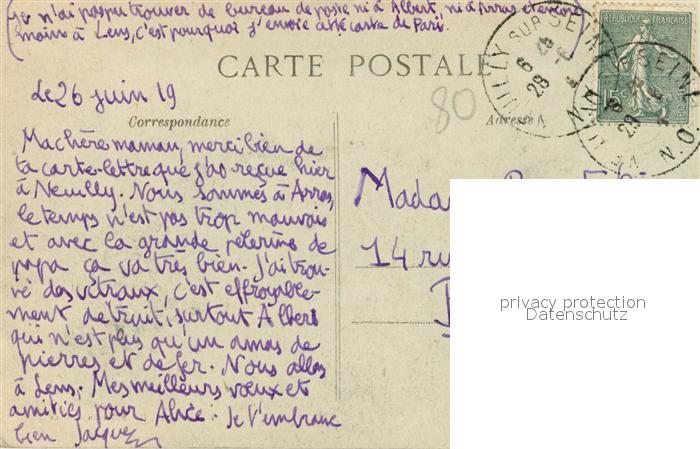 (Je n'ai pas pu trouver de bureau de poste ni à Albert, ni à Arras et encore
moins à Lens, c'est pourquoi j'envoie cette carte de Paris.)
CARTE POSTALE
80
Le 26 juin 19
Correspondance
Adresse
Ma chère maman, merci bien de
ta carte-lettre que j'ai reçue hier
à Neuilly. Nous sommes à Arras,
le temps n'est pas trop mauvais
et avec la grande pèlerine de
papa ça va très bien. J'ai trou-
vé des vitraux, c'est effroyable-
ment détruit, surtout Albert
qui n'est plus qu'un amas de
pierres et de fer. Nous allons
à Lens. Mes meilleurs vœux et
amitiés pour Alice. Je t'embrasse
bien Jacques
REPUBLIQUE FRANÇAISE
15c
NEUILLY SUR SEINE
Mada
14 ru
privacy protection
Datenschutz